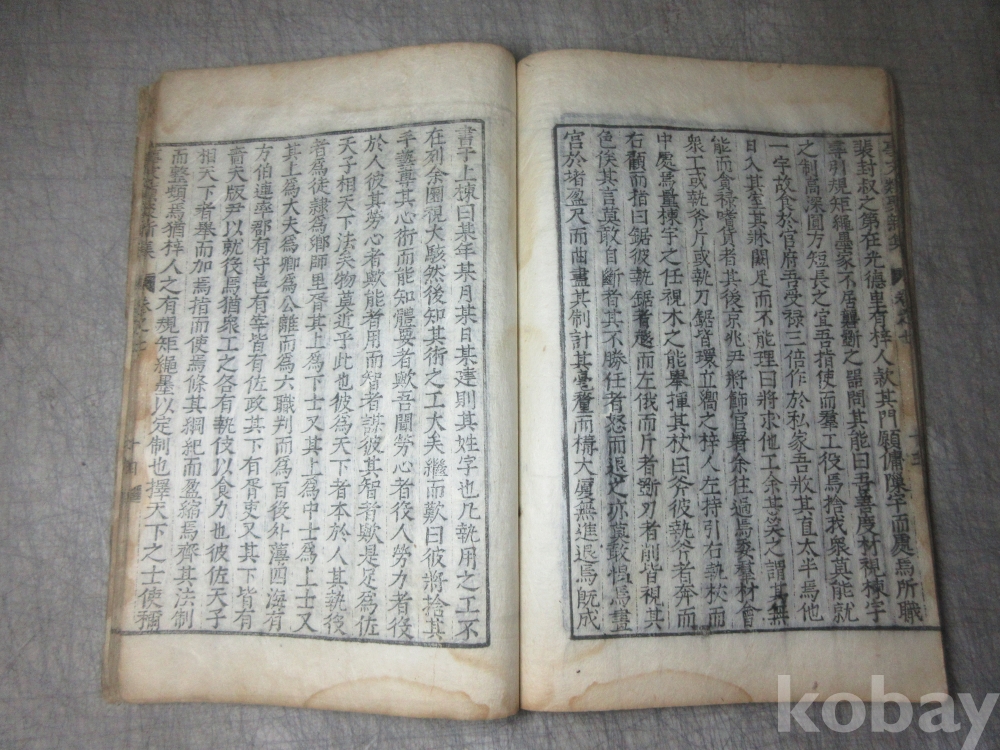 裴封叔之第在光德里有梓人款其門願傭隟宇而處焉所職
尋引規矩繩墨家不居礱斲之器問其能曰吾善度材視棟宇
之制高深圓方短長之宜吾指使而羣工役焉捨我衆莫能就
一宇故食於官府吾受祿三倍作於私家吾收其直太半焉他
日入其室其牀闕足而不能理曰將求他工余甚笑之謂其無
能而貪祿嗜貨者其後京兆尹將飾官署余往過焉委羣材會
衆工或執斧斤或執刀鋸皆環立嚮之梓人左持引右執杖而
中處焉量棟宇之任視木之能舉揮其杖曰斧彼執斧者奔而
右顧而指曰鋸彼執鋸者趨而左俄而斤者斲刀者削皆視其
色俟其言莫敢自斷者其不勝任者怒而退之亦莫敢慍焉畫
宮於堵盈尺而曲盡其制計其毫釐而構大厦無進退焉既成
書于上棟曰某年某月某日某建則其姓字也凡執用之工不
在列余圜視大駭然後知其術之工大矣繼而歎曰彼將捨其
手藝專其心術而能知體要者歟吾聞勞心者役人勞力者役
於人彼其勞心者歟能者用而智者謀彼其智者歟是足爲佐
天子相天下法矣物莫近乎此也彼爲天下者本於人其執役
者爲徒隷爲鄉師里胥其上爲下士又其上爲中士爲上士又
其上爲大夫爲卿爲公離而爲六職判而爲百役外薄四海有
方伯連率郡有守邑有宰皆有佐政其下有胥吏又其下皆有
嗇夫版尹以就役焉猶衆工之各有執伎以食力也彼佐天子
相天下者舉而加焉指而使焉條其綱紀而盈縮焉齊其法制
而整頓焉猶梓人之有規矩繩墨以定制也擇天下之士使稱
kobay